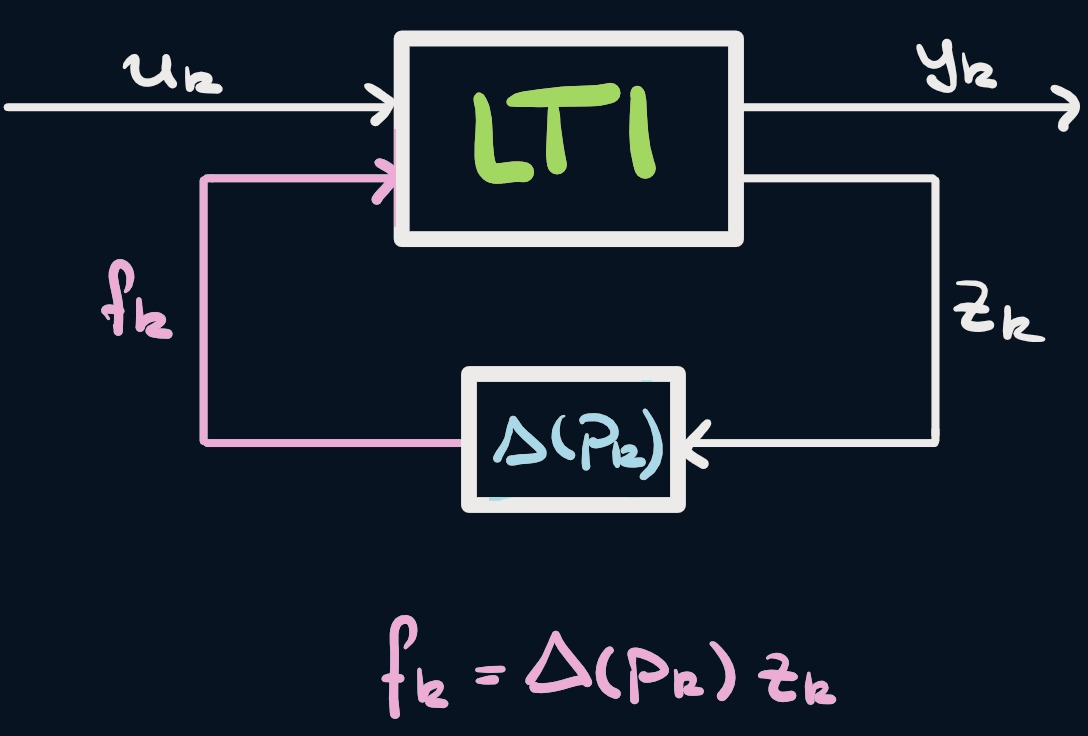 uₖ
yₖ
LTI
fₖ
zₖ
Δ(pₖ)
fₖ = Δ(pₖ) zₖ